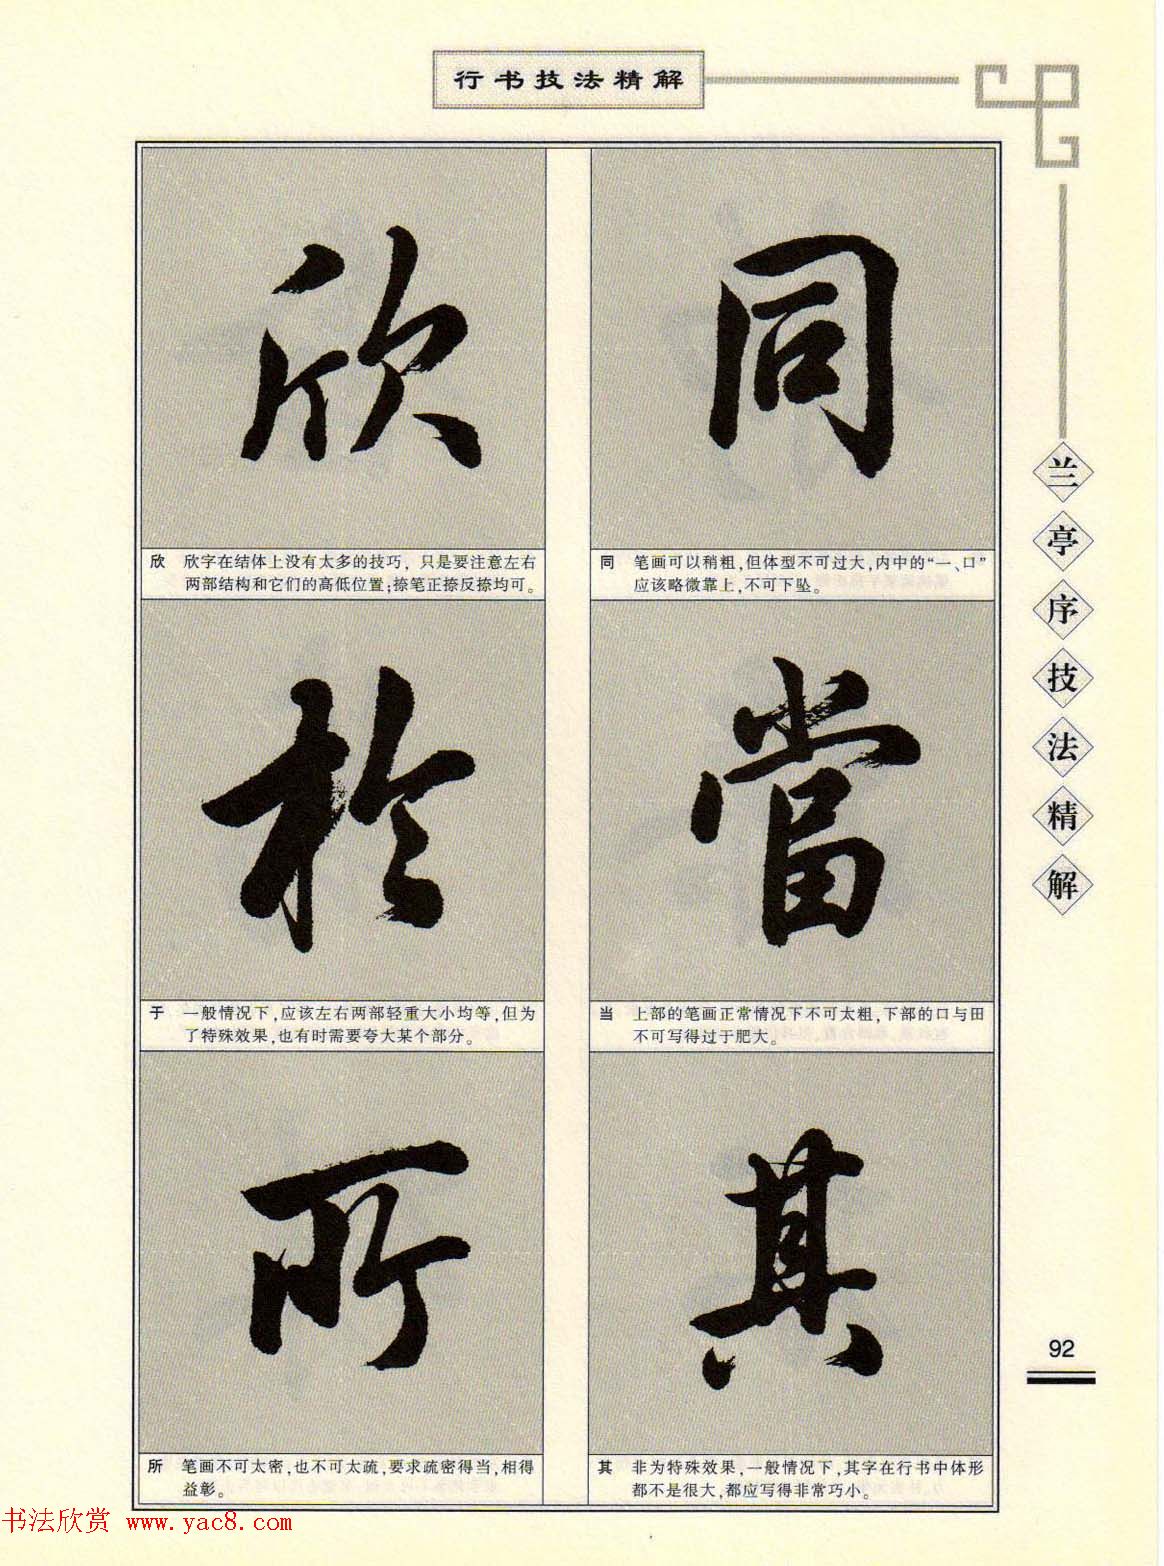 行书技法精解
同
同 笔画可以稍粗,但体型不可过大,内中的“一、口”
应该略微靠上,不可下坠。
當
当 上部的笔画正常情况下不可太粗,下部的口与田
不可写得过于肥大。
其
其 非为特殊效果,一般情况下,其字在行书中体形
都不是很大,都应写得非常巧小。
欣
欣 欣字在结体上没有太多的技巧,只是要注意左右
两部结构和它们的高低位置;捺笔正捺反捺均可。
於
于 一般情况下,应该左右两部轻重大小均等,但为
了特殊效果,也有时需要夸大某个部分。
所
所 笔画不可太密,也不可太疏,要求疏密得当,相得
益彰。
兰亭序技法精解
92
书法欣赏 www.yac8.com